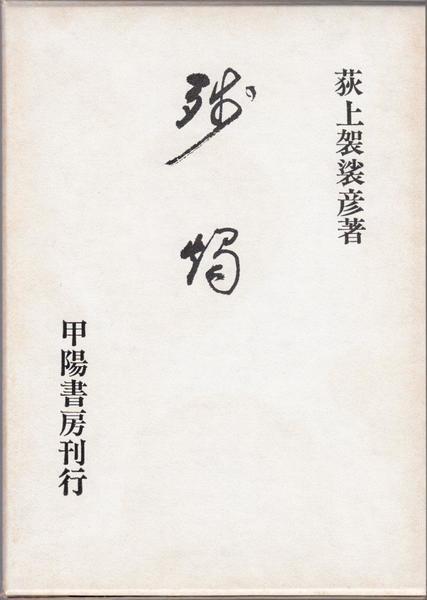 荻上袈裟彦著
残燭
甲陽書房刊行